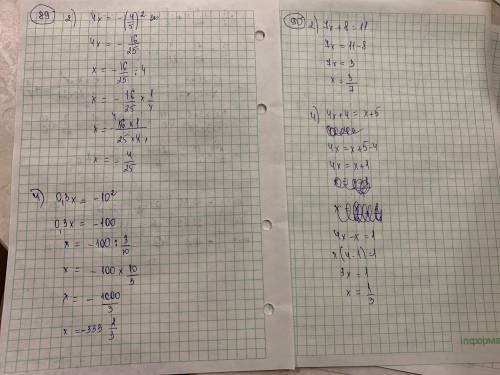 89
2) 4x = -(4/5)²
4x = - 16/25
x = - 16/25 : 4
x = - 16/25 × 1/4
x = - 16×1/25×4
x = - 4/25
4) 0,3x = -10²
0,3x = -100
x = -100 : 3/10
x = -100 × 10/3
x = - 1000/3
x = -333 1/3
90
2) 7x+8 = 11
7x = 11-8
7x = 3
x = 3/7
4) 4x+4 = x+5
4x = x+5-4
4x = x+1
4x-x = 1
x(4-1) = 1
3x = 1
x = 1/3